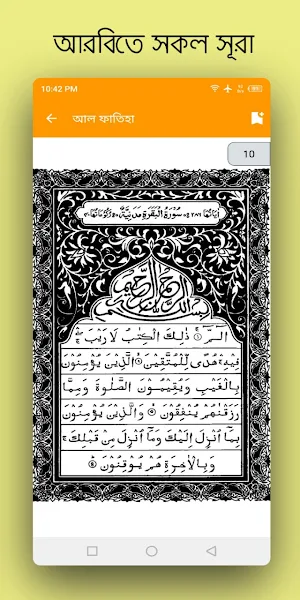 আরবিতে সকল সূরা
10:42 PM
আল ফাতিহা
10
اٰيَاتُهَا ٢٨٦ سُوْرَةُ الْبَقَرَةِ مَدَنِيَّةٌ رُكُوْعَاتُهَا ٤٠
بِسْمِ اللهِ الرَّحْمٰنِ الرَّحِيْمِ
الٓمّٓ ۚ ذٰلِكَ الْكِتٰبُ لَا رَيْبَ ۛ
فِيْهِ ۛ هُدًى لِّلْمُتَّقِيْنَ ۙ الَّذِيْنَ يُؤْمِنُوْنَ
بِالْغَيْبِ وَيُقِيْمُوْنَ الصَّلٰوةَ وَمِمَّا
رَزَقْنٰهُمْ يُنْفِقُوْنَ ۙ وَالَّذِيْنَ يُؤْمِنُوْنَ
بِمَآ اُنْزِلَ اِلَيْكَ وَمَآ اُنْزِلَ مِنْ قَبْلِكَ ۚ
وَبِالْاٰخِرَةِ هُمْ يُوْقِنُوْنَ ۙ